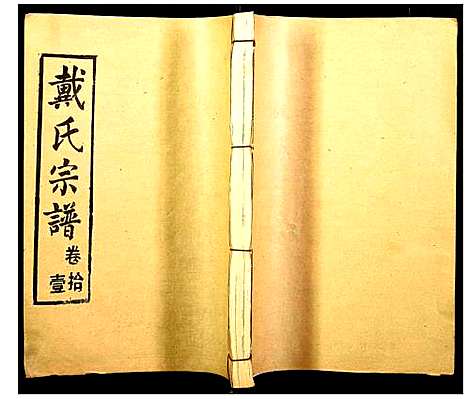 戴氏宗譜
卷
拾壹